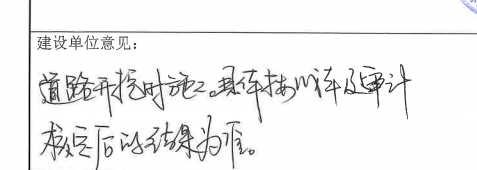 建设单位意见：
道路开挖时施工。具体按以车及审计
核定后的结果为准。